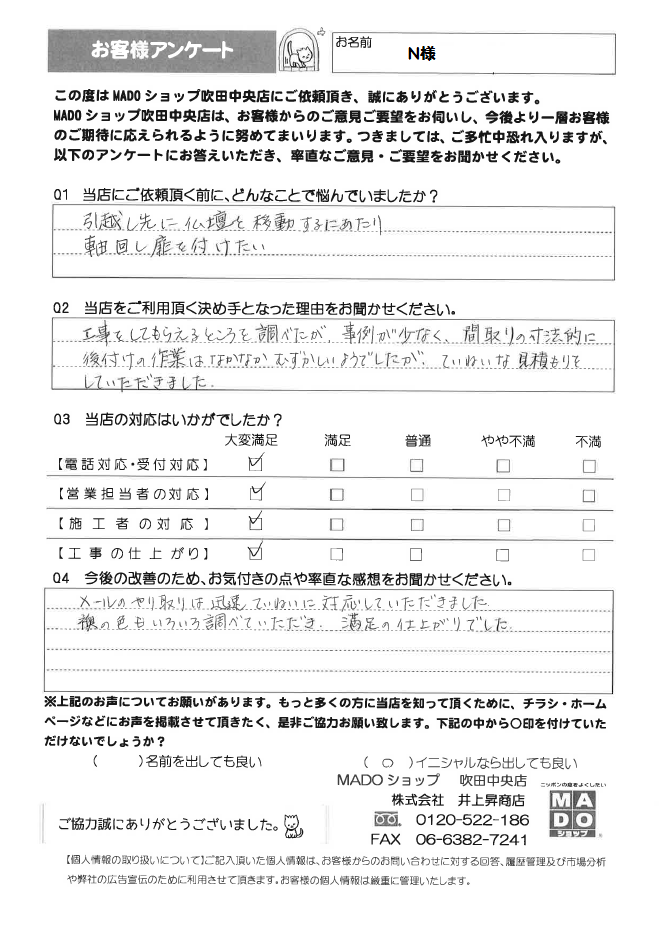 お客様アンケート
お名前
N様
この度は MADO ショップ吹田中央店にご依頼頂き、誠にありがとうございます。
MADO ショップ吹田中央店は、お客様からのご意見ご要望をお伺いし、今後より一層お客様
のご期待に応えられるように努めてまいります。つきましては、ご多忙中恐れ入りますが、
以下のアンケートにお答えいただき、率直なご意見・ご要望をお聞かせください。
Q1 当店にご依頼頂く前に、どんなことで悩んでいましたか?
引越し先に仏壇を移動するにあたり
軸回し扉を付けたい
Q2 当店をご利用頂く決め手となった理由をお聞かせください。
工事をしてもらえるところを調べたが、事例が少なく、間取りの寸法的に
後付けの作業はなかなかむずかしいようでしたが、ていねいな見積もりを
していただきました.
Q3 当店の対応はいかがでしたか?
大変満足 満足 普通 やや不満 不満
【電話対応・受付対応】
【営業担当者の対応】
【施工者の対応】
【工事の仕上がり】
Q4 今後の改善のため、お気付きの点や率直な感想をお聞かせください。
メールのやり取りは迅速ていねいに対応していただきました.
襖の色もいろいろ調べていただき、満足の仕上がりでした.
※上記のお声についてお願いがあります。もっと多くの方に当店を知って頂くために、チラシ・ホーム
ページなどにお声を掲載させて頂きたく、是非ご協力お願い致します。下記の中から○印を付けていた
だけないでしょうか?
( )名前を出しても良い
( ○ )イニシャルなら出しても良い
MADO ショップ 吹田中央店
株式会社 井上昇商店
0120-522-186
FAX 06-6382-7241
ニッポンの窓をよくしたい
MA
DO
ショップ
ご協力誠にありがとうございました。
【個人情報の取り扱いについて】ご記入頂いた個人情報は、お客様からのお問い合わせに対する回答、履歴管理及び市場分析
や弊社の広告宣伝のために利用させて頂きます。お客様の個人情報は厳重に管理いたします。